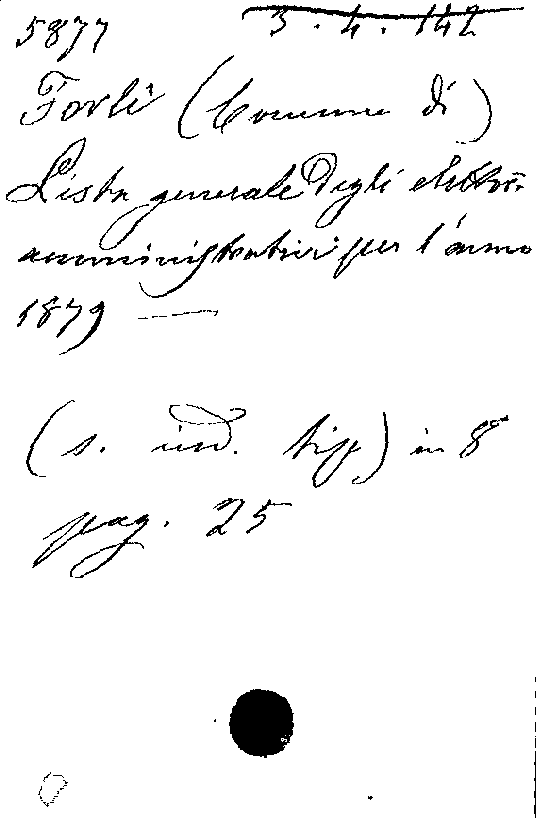 5877 3. 4. 142
Forlì (Comune di)
Lista generale degli elettori
amministrativi per l'anno
1879 —
(s. ind. tip) in 8°
pag. 25